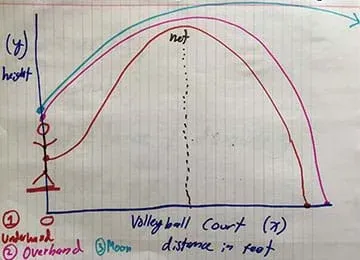 (y)
height
net
① Underhand
② Overhand
③ Moon
0
Volleyball Court (x)
distance in feet